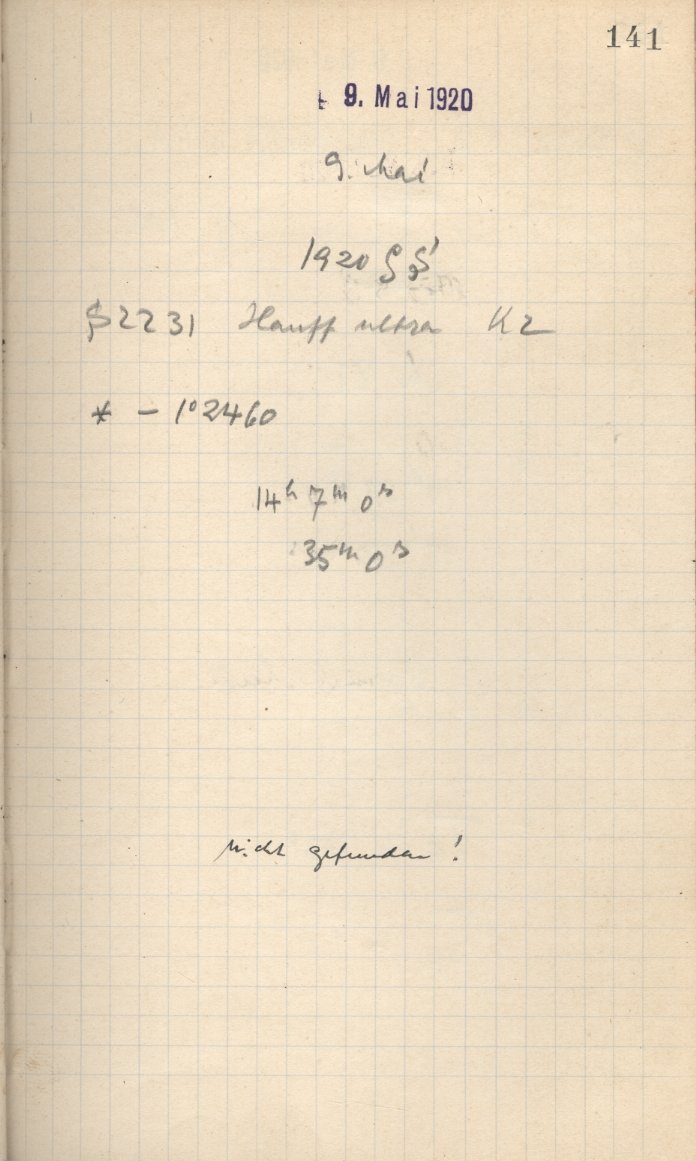 141
9. Mai 1920
9. Mai
1920
2231 Hauff ultra K2
* – 1°2460
14ʰ 7ᵐ 0ˢ
35ᵐ 0ˢ
nicht gefunden!